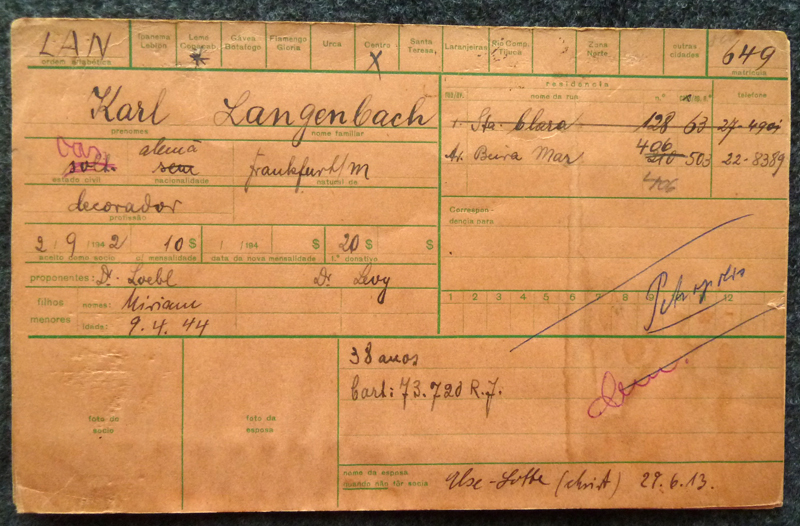 LAN
ordem alfabética
Ipanema Leblon
Leme Copacab.
Gávea Botafogo
Flamengo Gloria
Urca
Centro
X
Santa Teresa
Laranjeiras
Rio Comp. Tijuca
Zona Norte
outras cidades
649
matricula
Karl Langenbach
prenomes
nome familiar
residencia
nome da rua
telefone
1. Sta. Clara 128 63 27-4901
Av. Beira Mar 406 210 503 22-8389
406
cas. solt. alemã sem
estado civil
nacionalidade
Frankfurt/M
natural de
decorador
profissão
Correspondencia para:
2/9/1942 10 $ / /194 $ 20 $
aceito como socio
c/ mensalidade
data da nova mensalidade
1.º donativo
proponentes: Dr. Loebl Dr. Levy
filhos menores
nomes: Miriam
idade: 9.4.44
1 2 3 4 5 6 7 8 9 12
Petropolis
38 anos
Cart: 73.720 R.J.
Dem.
foto do socio
foto da esposa
nome da esposa quando não fôr socia
Ilse-Lotte (christ) 29.6.13.